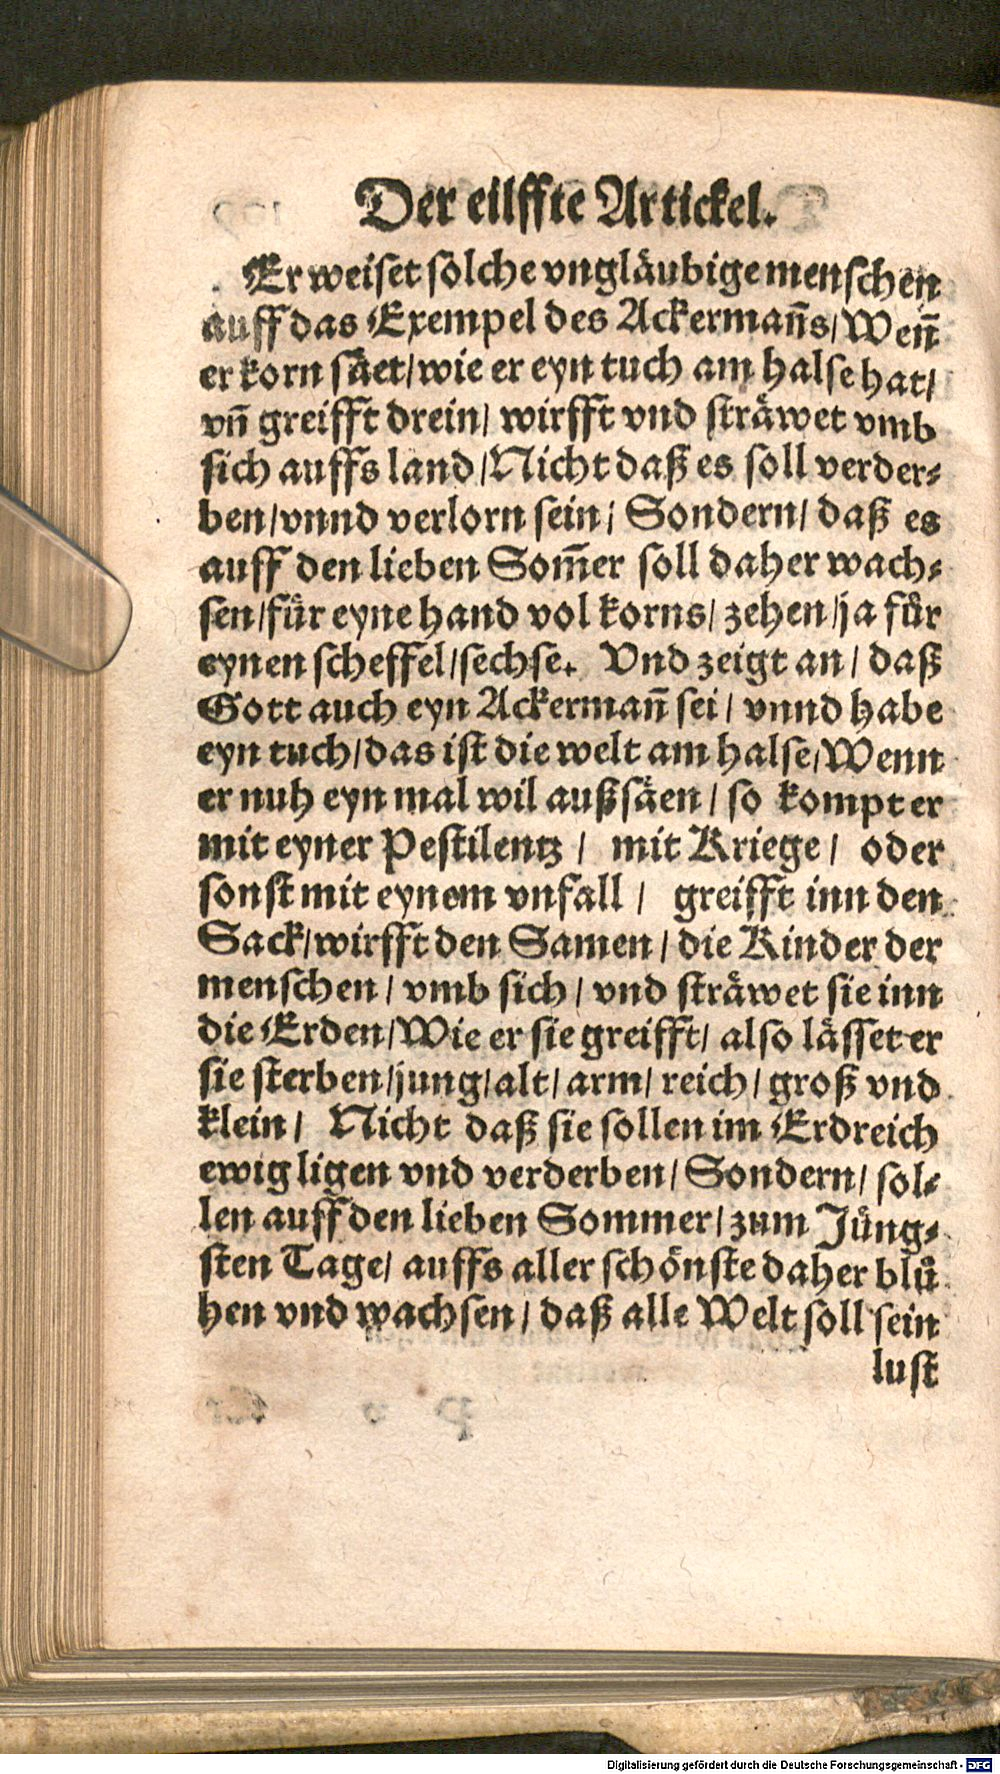 Der eilffte Artickel.
Er weiset solche vngläubige menschen
auff das Exempel des Ackermañs/ Weñ
er korn säet/ wie er eyn tuch am halse hat/
vñ greifft drein/ wirfft vnd sträwet vmb
sich auffs land/ Nicht daß es soll verder⸗
ben/ vnnd verlorn sein/ Sondern/ daß es
auff den lieben Som̃er soll daher wach⸗
sen/ für eyne hand vol korns/ zehen/ ja für
eynen scheffel/ sechse. Vnd zeigt an/ daß
Gott auch eyn Ackermañ sei/ vnnd habe
eyn tuch/ das ist die welt am halse/ Wenn
er nuh eyn mal wil außsäen/ so kompt er
mit eyner Pestilentz/ mit Kriege/ oder
sonst mit eynem vnfall/ greifft inn den
Sack/ wirfft den Samen/ die Kinder der
menschen/ vmb sich/ vnd sträwet sie inn
die Erden/ Wie er sie greifft/ also lässet er
sie sterben/ jung/ alt/ arm/ reich/ groß vnd
klein/ Nicht daß sie sollen im Erdreich
ewig ligen vnd verderben/ Sondern/ sol⸗
len auff den lieben Sommer/ zum Jüng⸗
sten Tage/ auffs aller schönste daher blü
hen vnd wachsen/ daß alle Welt soll sein
lust
Digitalisierung gefördert durch die Deutsche Forschungsgemeinschaft - DFG